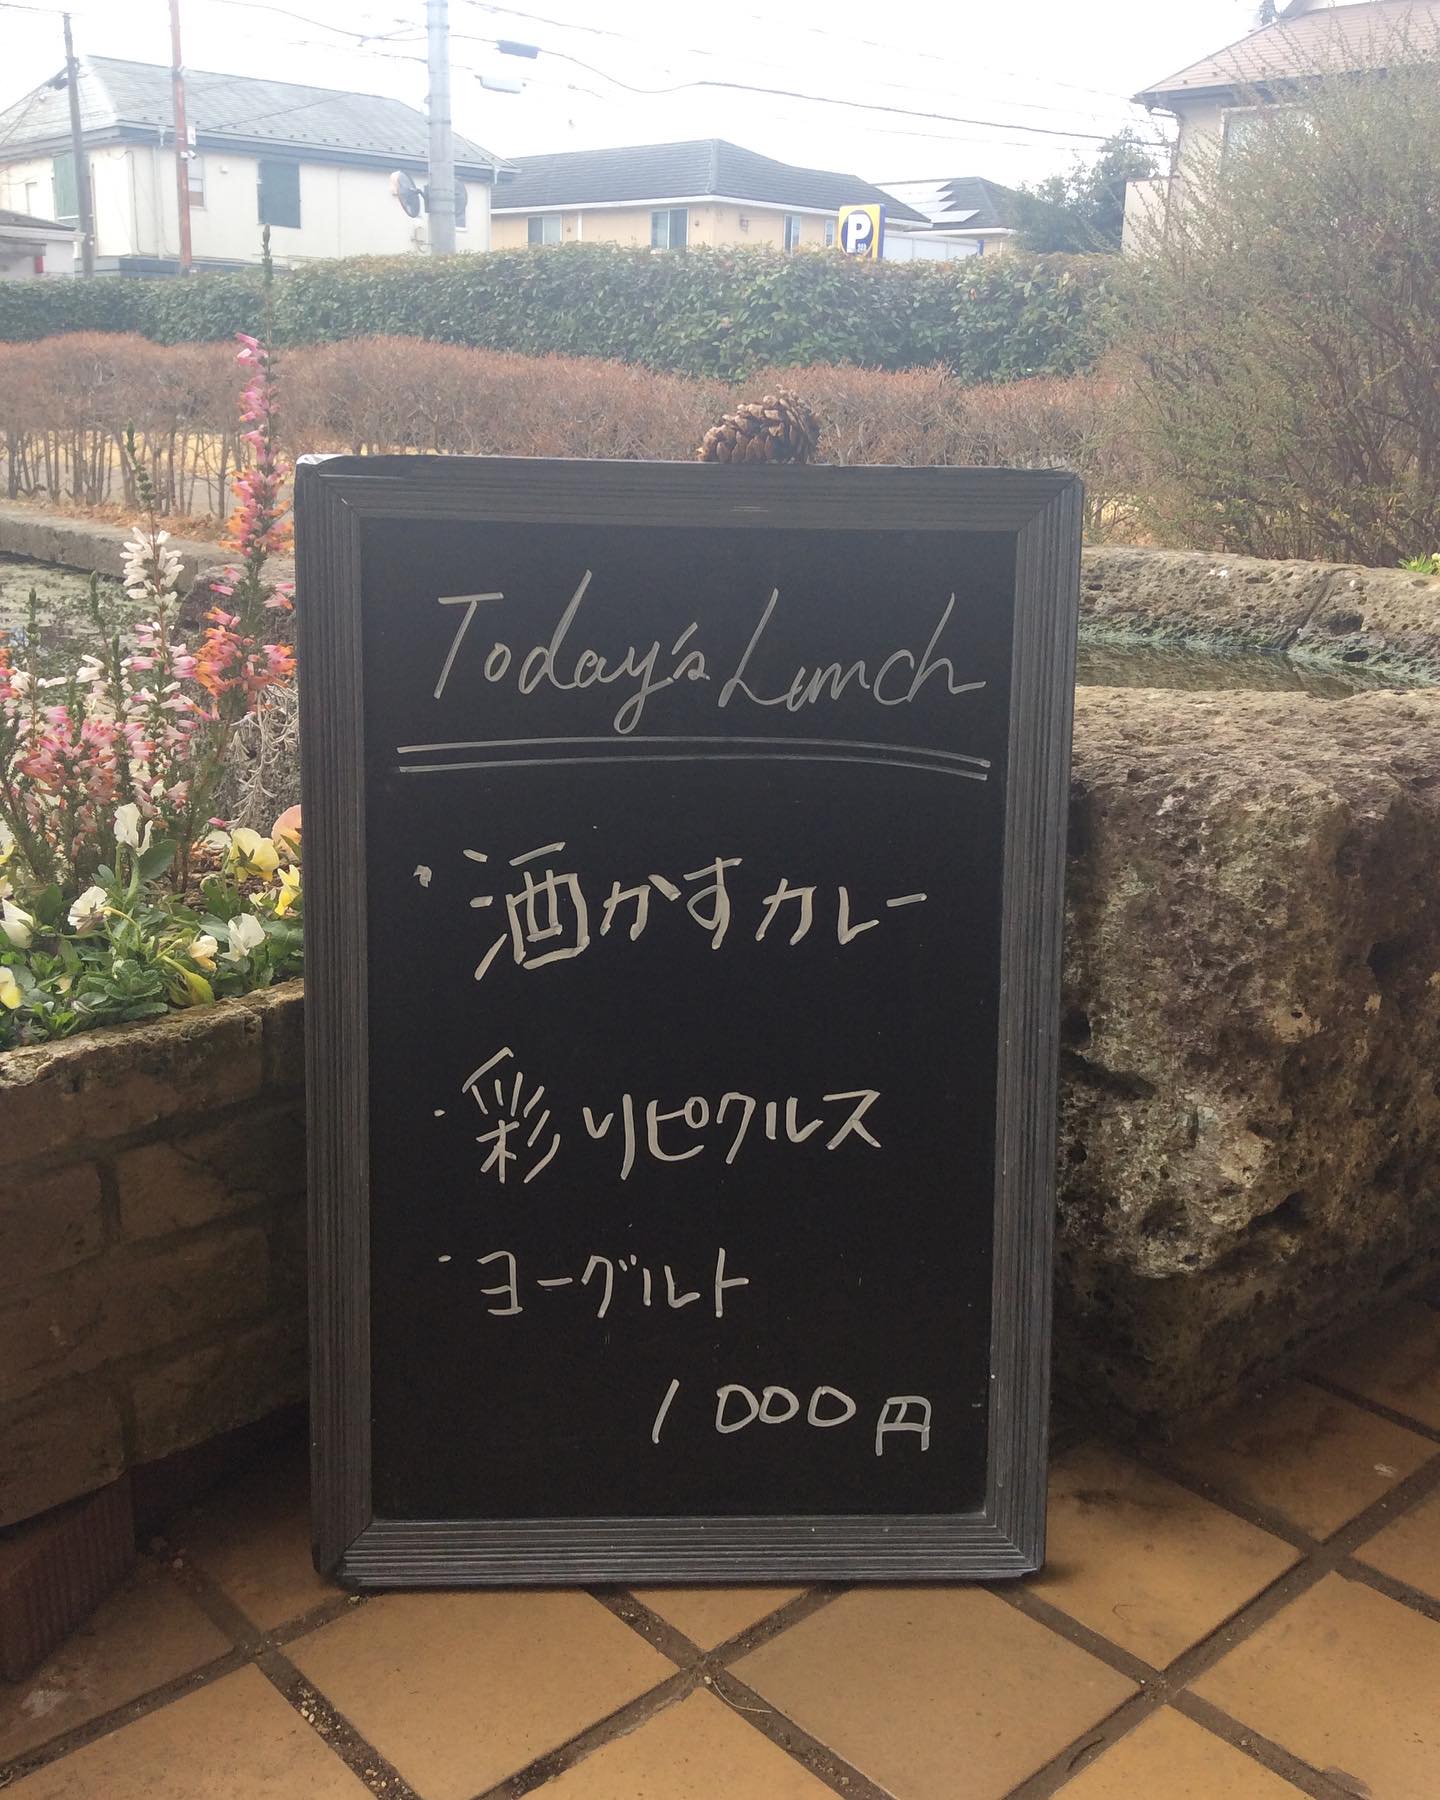 P
Today's Lunch
・酒かすカレー
・彩りピクルス
・ヨーグルト
1000円